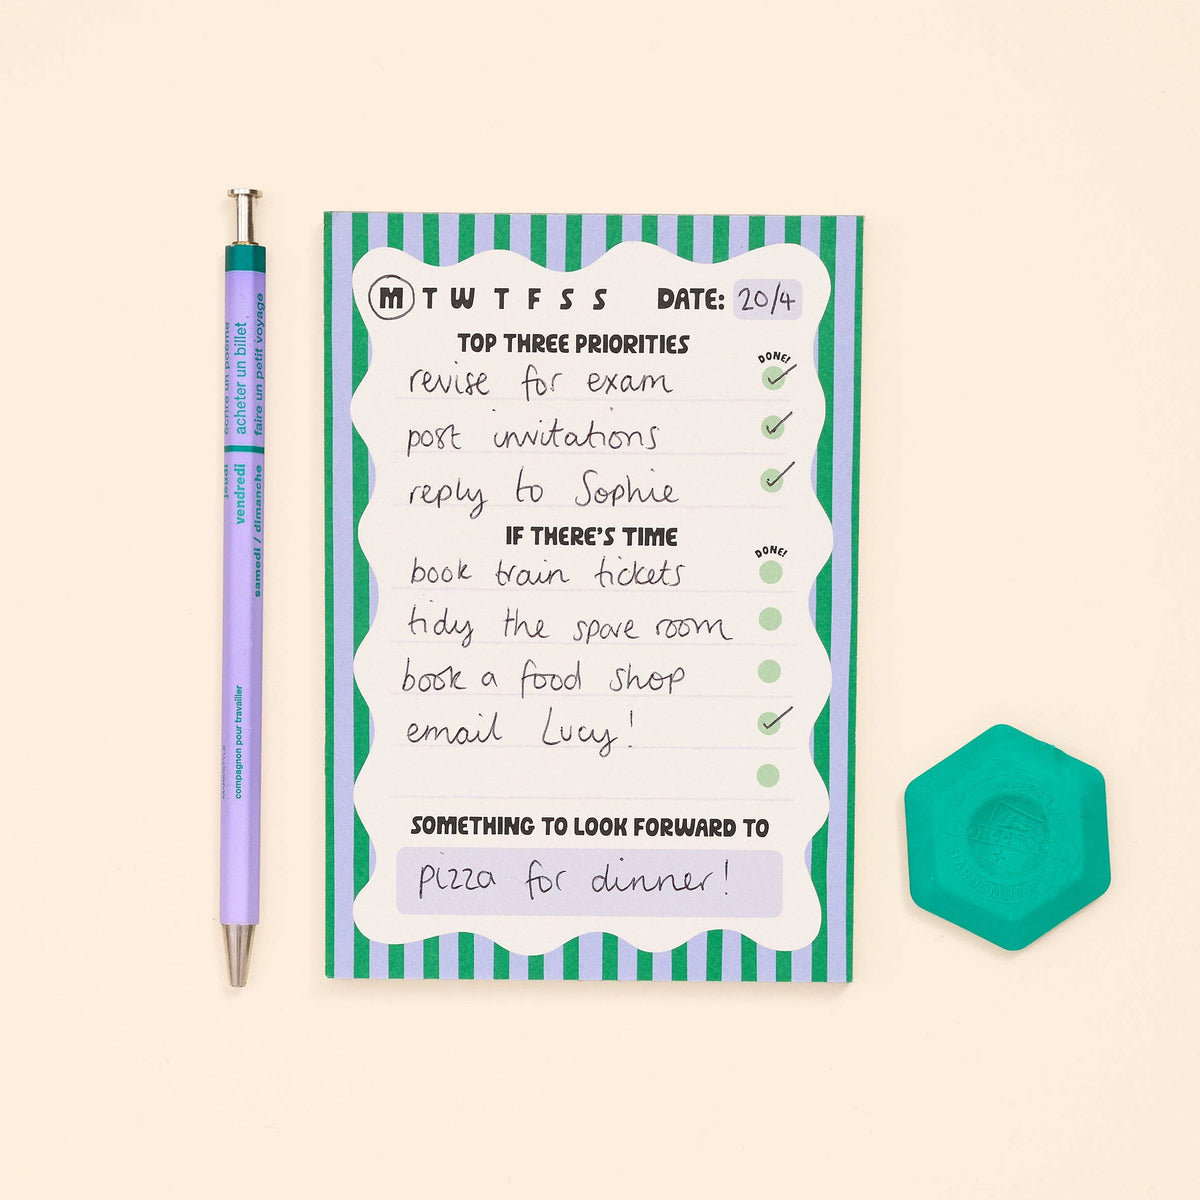 M T W T F S S DATE: 20/4
TOP THREE PRIORITIES
DONE!
revise for exam
post invitations
reply to Sophie
IF THERE'S TIME
DONE!
book train tickets
tidy the spare room
book a food shop
email Lucy!
SOMETHING TO LOOK FORWARD TO
pizza for dinner!
écrire un poème
acheter un billet
faire un petit voyage
jeudi
vendredi
samedi / dimanche
compagnon pour travailler